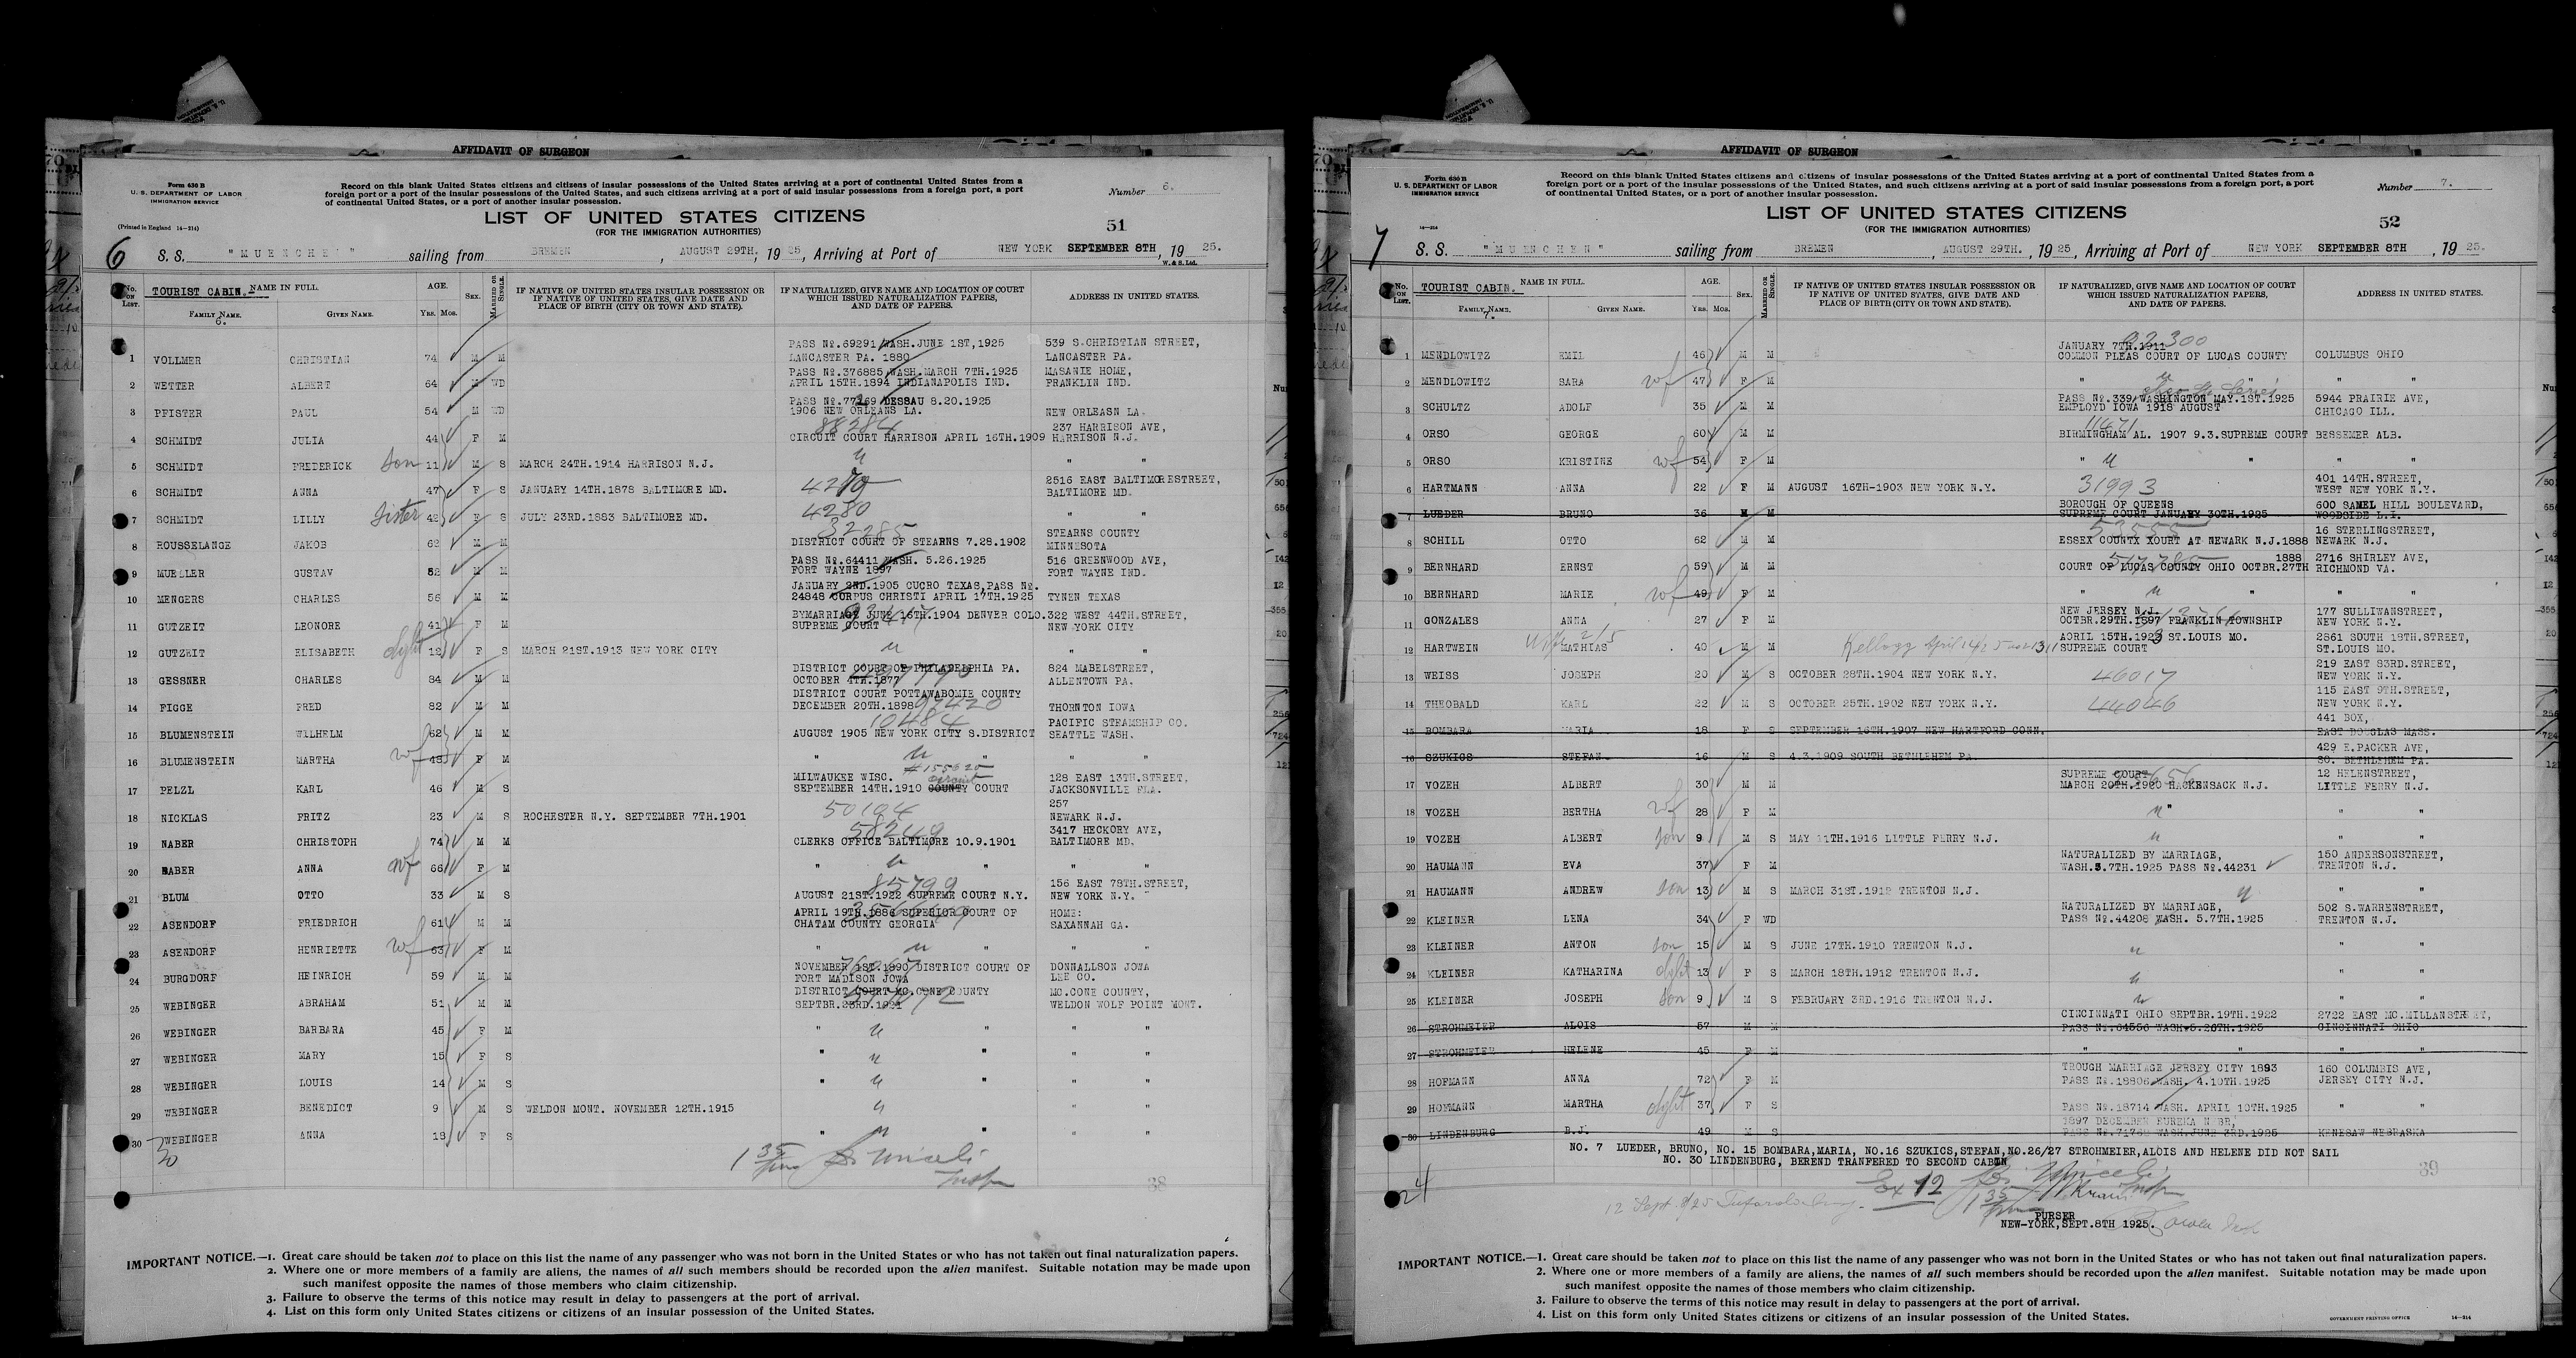 AFFIDAVIT OF SURGEON
Form 630 B
U. S. DEPARTMENT OF LABOR
IMMIGRATION SERVICE
(Printed in England 14—214)
Record on this blank United States citizens and citizens of insular possessions of the United States arriving at a port of continental United States from a
foreign port or a port of the insular possessions of the United States, and such citizens arriving at a port of said insular possessions from a foreign port, a port
of continental United States, or a port of another insular possession.
Number 6.
LIST OF UNITED STATES CITIZENS
(FOR THE IMMIGRATION AUTHORITIES)
51
6 S. S. "MUENCHEN" sailing from BREMEN, AUGUST 29TH, 1925, Arriving at Port of NEW YORK SEPTEMBER 8TH, 1925.
W. & S. Ltd.
No. ON LIST. TOURIST CABIN. NAME IN FULL. AGE. SEX. MARRIED OR SINGLE. IF NATIVE OF UNITED STATES INSULAR POSSESSION OR IF NATIVE OF UNITED STATES, GIVE DATE AND PLACE OF BIRTH (CITY OR TOWN AND STATE). IF NATURALIZED, GIVE NAME AND LOCATION OF COURT WHICH ISSUED NATURALIZATION PAPERS, AND DATE OF PAPERS. ADDRESS IN UNITED STATES.
FAMILY NAME. 6. GIVEN NAME. YRS. MOS.
PASS No.69291 WASH.JUNE 1ST,1925 539 S.CHRISTIAN STREET,
1 VOLLMER CHRISTIAN 74 M M LANCASTER PA. 1880 LANCASTER PA.
PASS No.376885 WASH.MARCH 7TH.1925 MASANIE HOME,
2 WETTER ALBERT 64 M WD APRIL 15TH.1894 INDIANAPOLIS IND. FRANKLIN IND.
PASS No.77269 DESSAU 8.20.1925
3 PFISTER PAUL 54 M WD 1906 NEW ORLEANS LA. NEW ORLEASN LA.
88284 237 HARRISON AVE,
4 SCHMIDT JULIA 44 F M CIRCUIT COURT HARRISON APRIL 16TH.1909 HARRISON N.J.
5 SCHMIDT FREDERICK son 11 M S MARCH 24TH.1914 HARRISON N.J. " "
6 SCHMIDT ANNA 47 F S JANUARY 14TH.1878 BALTIMORE MD. 2516 EAST BALTIMORESTREET,
BALTIMORE MD.
7 SCHMIDT LILLY sister 42 F S JULY 23RD.1883 BALTIMORE MD. 4280 " "
32285 STEARNS COUNTY
8 ROUSSELANGE JAKOB 62 M M DISTRICT COURT OF STEARNS 7.28.1902 MINNESOTA
PASS No.64411 WASH. 5.26.1925 516 GREENWOOD AVE,
9 MUELLER GUSTAV 52 M M FORT WAYNE 1897 FORT WAYNE IND.
JANUARY 2ND.1905 CUCRO TEXAS,PASS No.
10 MENGERS CHARLES 56 M M 24848 CORPUS CHRISTI APRIL 17TH.1925 TYNEN TEXAS
BYMARRIAGE JUNE 16TH.1904 DENVER COLO. 322 WEST 44TH.STREET,
11 GUTZEIT LEONORE 41 F M SUPREME COURT NEW YORK CITY
12 GUTZEIT ELISABETH dght 12 F S MARCH 21ST.1913 NEW YORK CITY " "
DISTRICT COURT OF PHILADELPHIA PA. 824 MABELSTREET,
13 GESSNER CHARLES 84 M M OCTOBER 4TH.1877 ALLENTOWN PA.
DISTRICT COURT POTTAWABOMIE COUNTY
14 FIGGE FRED 82 M M DECEMBER 20TH.1898 THORNTON IOWA
10484 PACIFIC STEAMSHIP CO.
15 BLUMENSTEIN WILHELM 62 M M AUGUST 1905 NEW YORK CITY S.DISTRICT SEATTLE WASH.
16 BLUMENSTEIN MARTHA wf 48 F M " " " "
#155620
MILWAUKEE WISC. circuit 128 EAST 13TH.STREET,
17 PELZL KARL 46 M S SEPTEMBER 14TH.1910 COUNTY COURT JACKSONVILLE FLA.
50104 257
18 NICKLAS FRITZ 23 M S ROCHESTER N.Y. SEPTEMBER 7TH.1901 NEWARK N.J.
58249 3417 HECKORY AVE,
19 NABER CHRISTOPH 74 M M CLERKS OFFICE BALTIMORE 10.9.1901 BALTIMORE MD.
20 NABER ANNA wf 66 F M " " " "
85799 156 EAST 78TH.STREET,
21 BLUM OTTO 33 M S AUGUST 21ST.1922 SUPREME COURT N.Y. NEW YORK N.Y.
APRIL 19TH.1886 SUPERIOR COURT OF HOME:
22 ASENDORF FRIEDRICH 61 M M CHATAM COUNTY GEORGIA SAXANNAH GA.
23 ASENDORF HENRIETTE wf 63 F M " " " "
NOVEMBER 1ST.1890 DISTRICT COURT OF DONNALLSON JOWA
24 BURGDORF HEINRICH 59 M M FORT MADISON JOWA LEE CO.
DISTRICT COURT MC.CONE COUNTY MC.CONE COUNTY,
25 WEBINGER ABRAHAM 51 M M SEPTBR.23RD.1921 WELDON WOLF POINT MONT.
26 WEBINGER BARBARA 45 F M " " " "
27 WEBINGER MARY 15 F S " " " "
28 WEBINGER LOUIS 14 M S " " " "
29 WEBINGER BENEDICT 9 M S WELDON MONT. NOVEMBER 12TH.1915 " "
30 WEBINGER ANNA 18 F S " " " "
30
38
IMPORTANT NOTICE.—1. Great care should be taken not to place on this list the name of any passenger who was not born in the United States or who has not taken out final naturalization papers.
2. Where one or more members of a family are aliens, the names of all such members should be recorded upon the alien manifest. Suitable notation may be made upon
such manifest opposite the names of those members who claim citizenship.
3. Failure to observe the terms of this notice may result in delay to passengers at the port of arrival.
4. List on this form only United States citizens or citizens of an insular possession of the United States.
AFFIDAVIT OF SURGEON
Form 630 B
U. S. DEPARTMENT OF LABOR
IMMIGRATION SERVICE
14—214
Record on this blank United States citizens and citizens of insular possessions of the United States arriving at a port of continental United States from a
foreign port or a port of the insular possessions of the United States, and such citizens arriving at a port of said insular possessions from a foreign port, a port
of continental United States, or a port of another insular possession.
Number 7.
LIST OF UNITED STATES CITIZENS
(FOR THE IMMIGRATION AUTHORITIES)
52
7 S. S. "MUENCHEN" sailing from BREMEN, AUGUST 29TH., 1925, Arriving at Port of NEW YORK SEPTEMBER 8TH, 1925.
No. ON LIST. TOURIST CABIN. NAME IN FULL. AGE. SEX. MARRIED OR SINGLE. IF NATIVE OF UNITED STATES INSULAR POSSESSION OR IF NATIVE OF UNITED STATES, GIVE DATE AND PLACE OF BIRTH (CITY OR TOWN AND STATE). IF NATURALIZED, GIVE NAME AND LOCATION OF COURT WHICH ISSUED NATURALIZATION PAPERS, AND DATE OF PAPERS. ADDRESS IN UNITED STATES.
FAMILY NAME. 7. GIVEN NAME. YRS. MOS.
JANUARY 7TH.1911
1 MENDLOWITZ EMIL 46 M M COMMON PLEAS COURT OF LUCAS COUNTY COLUMBUS OHIO
2 MENDLOWITZ SARA wf 47 F M " " " "
PASS No.339 WASHINGTON MAY.1ST.1925 5944 PRAIRIE AVE,
3 SCHULTZ ADOLF 35 M M EMPLOYD IOWA 1918 AUGUST CHICAGO ILL.
11471
4 ORSO GEORGE 60 M M BIRMINGHAM AL. 1907 9.3.SUPREME COURT BESSEMER ALB.
5 ORSO KRISTINE wf 54 F M " " " "
401 14TH.STREET,
6 HARTMANN ANNA 22 F M AUGUST 16TH-1903 NEW YORK N.Y. 31993 WEST NEW YORK N.Y.
BOROUGH OF QUEENS 600 SANEL HILL BOULEVARD,
7 LUEDER BRUNO 36 M M SUPREME COURT JANUARY 30TH.1925 WOODSIDE L.I.
16 STERLINGSTREET,
8 SCHILL OTTO 62 M M ESSEX COUNTX XOURT AT NEWARK N.J.1888 NEWARK N.J.
1888 2716 SHIRLEY AVE,
9 BERNHARD ERNST 59 M M COURT OF LUCAS COUNTY OHIO OCTBR.27TH RICHMOND VA.
10 BERNHARD MARIE wf 49 F M " " " "
NEW JERSEY N.J. 177 SULLIWANSTREET,
11 GONZALES ANNA 27 F M OCTBR.29TH.1897 FRANKLIN TOWNSHIP NEW YORK N.Y.
AORIL 15TH.1923 ST.LOUIS MO. 2861 SOUTH 18TH.STREET,
12 HARTWEIN MATHIAS 40 M M SUPREME COURT ST.LOUIS MO.
219 EAST 83RD.STREET,
13 WEISS JOSEPH 20 M S OCTOBER 28TH.1904 NEW YORK N.Y. 46017 NEW YORK N.Y.
115 EAST 9TH.STREET,
14 THEOBALD KARL 22 M S OCTOBER 25TH.1902 NEW YORK N.Y. 44046 NEW YORK N.Y.
441 BOX,
15 BOMBARA MARIA 18 F S SEPTEMBER 16TH.1907 NEW HARTFORD CONN. EAST DOUGLAS MASS.
429 E.PACKER AVE,
16 SZUKICS STEFAN 16 M S 4.3.1909 SOUTH BETHLEHEM PA. SO. BETHLEHEM PA.
SUPREME COURT 12 HELENSTREET,
17 VOZEH ALBERT 30 M M MARCH 20TH.1920 HACKENSACK N.J. LITTLE FERRY N.J.
18 VOZEH BERTHA wf 28 F M " " "
19 VOZEH ALBERT son 9 M S MAY 11TH.1916 LITTLE FERRY N.J. " "
NATURALIZED BY MARRIAGE, 150 ANDERSONSTREET,
20 HAUMANN EVA 37 F M WASH.5.7TH.1925 PASS No.44231 TRENTON N.J.
21 HAUMANN ANDREW son 13 M S MARCH 31ST.1912 TRENTON N.J. " "
NATURALIZED BY MARRIAGE, 502 S.WARRENSTREET,
22 KLEINER LENA 34 F WD PASS No.44208 WASH. 5.7TH.1925 TRENTON N.J.
23 KLEINER ANTON son 15 M S JUNE 17TH.1910 TRENTON N.J. " "
24 KLEINER KATHARINA dght 13 F S MARCH 18TH.1912 TRENTON N.J. " "
25 KLEINER JOSEPH son 9 M S FEBRUARY 3RD.1916 TRENTON N.J. " "
CINCINNATI OHIO SEPTBR.19TH.1922 2722 EAST MC.MILLANSTREET,
26 STROHMEIER ALOIS 57 M M PASS No.64556 WASH.5.26TH.1925 CINCINNATI OHIO
27 STROHMEIER HELENE 45 F M " " " "
TROUGH MARRIAGE JERSEY CITY 1893 160 COLUMBIS AVE,
28 HOFMANN ANNA 72 F M PASS No.18806 WASH. 4.10TH.1925 JERSEY CITY N.J.
29 HOFMANN MARTHA dght 37 F S PASS No.18714 WASH. APRIL 10TH.1925 " "
1897 DECEMBER EUREKA NEBR,
30 LINDENBURG B.J. 49 M S WASH.JUNE 3RD.1925 KENESAW NEBRASKA
NO. 7 LUEDER, BRUNO, NO. 15 BOMBARA,MARIA, NO.16 SZUKICS,STEFAN,NO.26/27 STROHMEIER,ALOIS AND HELENE DID NOT SAIL
NO. 30 LINDENBURG, BEREND TRANFERED TO SECOND CABIN
39
24
PURSER
NEW-YORK,SEPT.8TH 1925.
IMPORTANT NOTICE.—1. Great care should be taken not to place on this list the name of any passenger who was not born in the United States or who has not taken out final naturalization papers.
2. Where one or more members of a family are aliens, the names of all such members should be recorded upon the alien manifest. Suitable notation may be made upon
such manifest opposite the names of those members who claim citizenship.
3. Failure to observe the terms of this notice may result in delay to passengers at the port of arrival.
4. List on this form only United States citizens or citizens of an insular possession of the United States.
GOVERNMENT PRINTING OFFICE 14—214